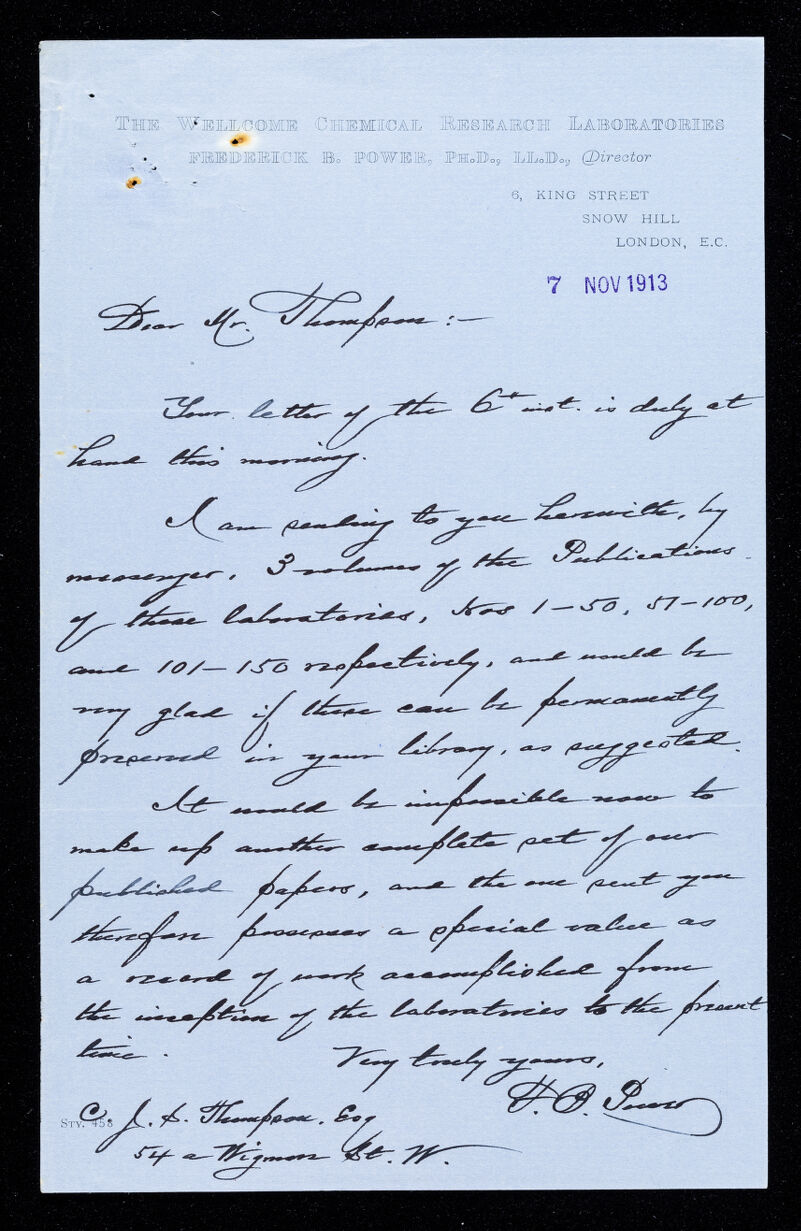 THE WELLCOME CHEMICAL RESEARCH LABORATORIES
FREDERICK B. POWER, PH.D., LL.D., Director
6, KING STREET
SNOW HILL
LONDON, E.C.
7 NOV 1913
Dear Mr. Thompson:—
Your letter of the 6th inst. is duly at
hand this morning.
I am sending to you herewith, by
messenger, 3 volumes of the Publications
of these laboratories, Nos 1–50, 51–100,
and 101–150 respectively, and would be
very glad if these can be permanently
preserved in your library, as suggested.
It would be impossible now to
make up another complete set of our
published papers, and the one sent you
therefore possesses a special value as
a record of work accomplished from
the inception of the laboratories to the present
time.
Very truly yours,
F. B. Power
C. J. S. Thompson, Esq
54 a Wigmore St. W.
STY. 458